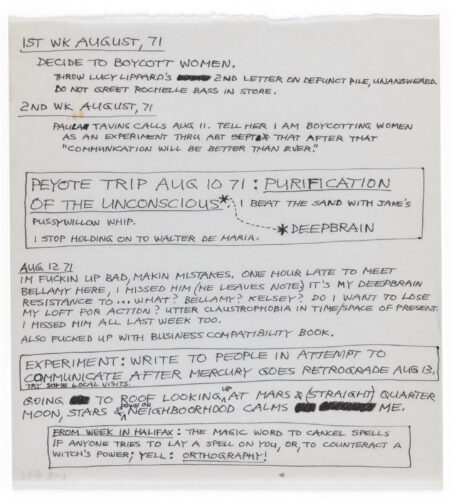 1ST WK AUGUST, 71
DECIDE TO BOYCOTT WOMEN.
THROW LUCY LIPPARD'S 2ND LETTER ON DEFUNCT PILE, UNANSWERED.
DO NOT GREET ROCHELLE BASS IN STORE.
2ND WK AUGUST, 71
PAULA TAVINS CALLS AUG 11. TELL HER I AM BOYCOTTING WOMEN
AS AN EXPERIMENT THRU ABT SEPT & THAT AFTER THAT
"COMMUNICATION WILL BE BETTER THAN EVER."
PEYOTE TRIP AUG 10 71: PURIFICATION
OF THE UNCONSCIOUS* I BEAT THE SAND WITH JAKE'S
PUSSYWILLOW WHIP.
*DEEPBRAIN
I STOP HOLDING ON TO WALTER DE MARIA.
AUG 12 71
IM FUCKIN UP BAD, MAKIN MISTAKES. ONE HOUR LATE TO MEET
BELLAMY HERE, I MISSED HIM (HE LEAVES NOTE) IT'S MY DEEPBRAIN
RESISTANCE TO... WHAT? BELLAMY? KELSEY? DO I WANT TO LOSE
MY LOFT FOR ACTION? UTTER CLAUSTROPHOBIA IN TIME/SPACE OF PRESENT.
I MISSED HIM ALL LAST WEEK TOO.
ALSO FUCKED UP WITH BUSINESS COMPATIBILITY BOOK.
EXPERIMENT: WRITE TO PEOPLE IN ATTEMPT TO
COMMUNICATE AFTER MERCURY GOES RETROGRADE AUG 13.
TRY SOME LOCAL VISITS.
GOING TO ROOF LOOKING UP AT MARS & (STRAIGHT) QUARTER
MOON, STARS & DOWN ON NEIGHBOORHOOD CALMS ME.
FROM WEEK IN HALIFAX: THE MAGIC WORD TO CANCEL SPELLS
IF ANYONE TRIES TO LAY A SPELL ON YOU, OR, TO COUNTERACT A
WITCH'S POWER; YELL: ORTHOGRAPHY!